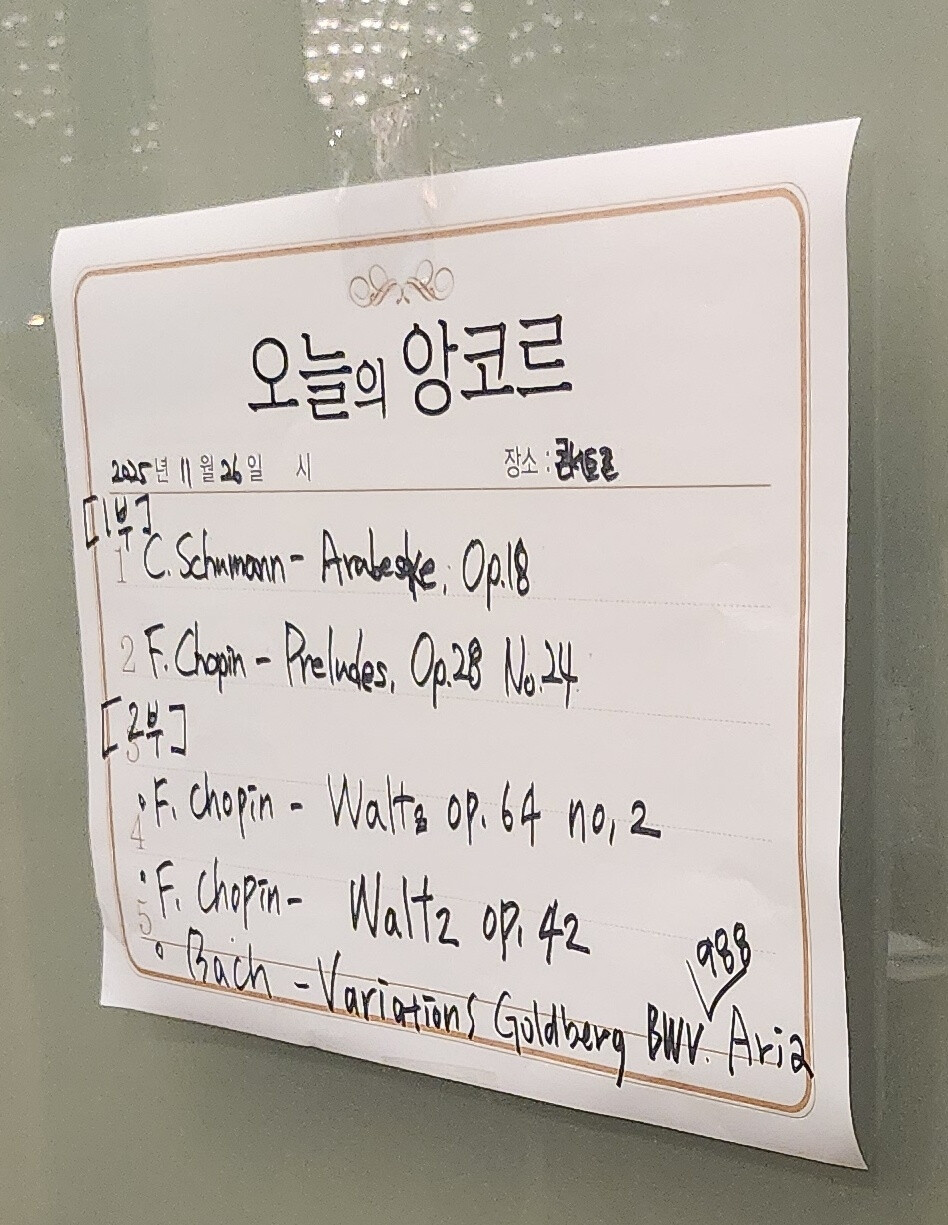 오늘의 앙코르
2025년 11월 26일 시 장소:
[1부]
1 C. Schumann - Arabeske, Op.18
2 F. Chopin - Preludes, Op.28 No.24
[2부]
3
4 • F. Chopin - Waltz op. 64 no, 2
5 • F. Chopin - Waltz op. 42
988
• Bach - Variations Goldberg BWV. Aria